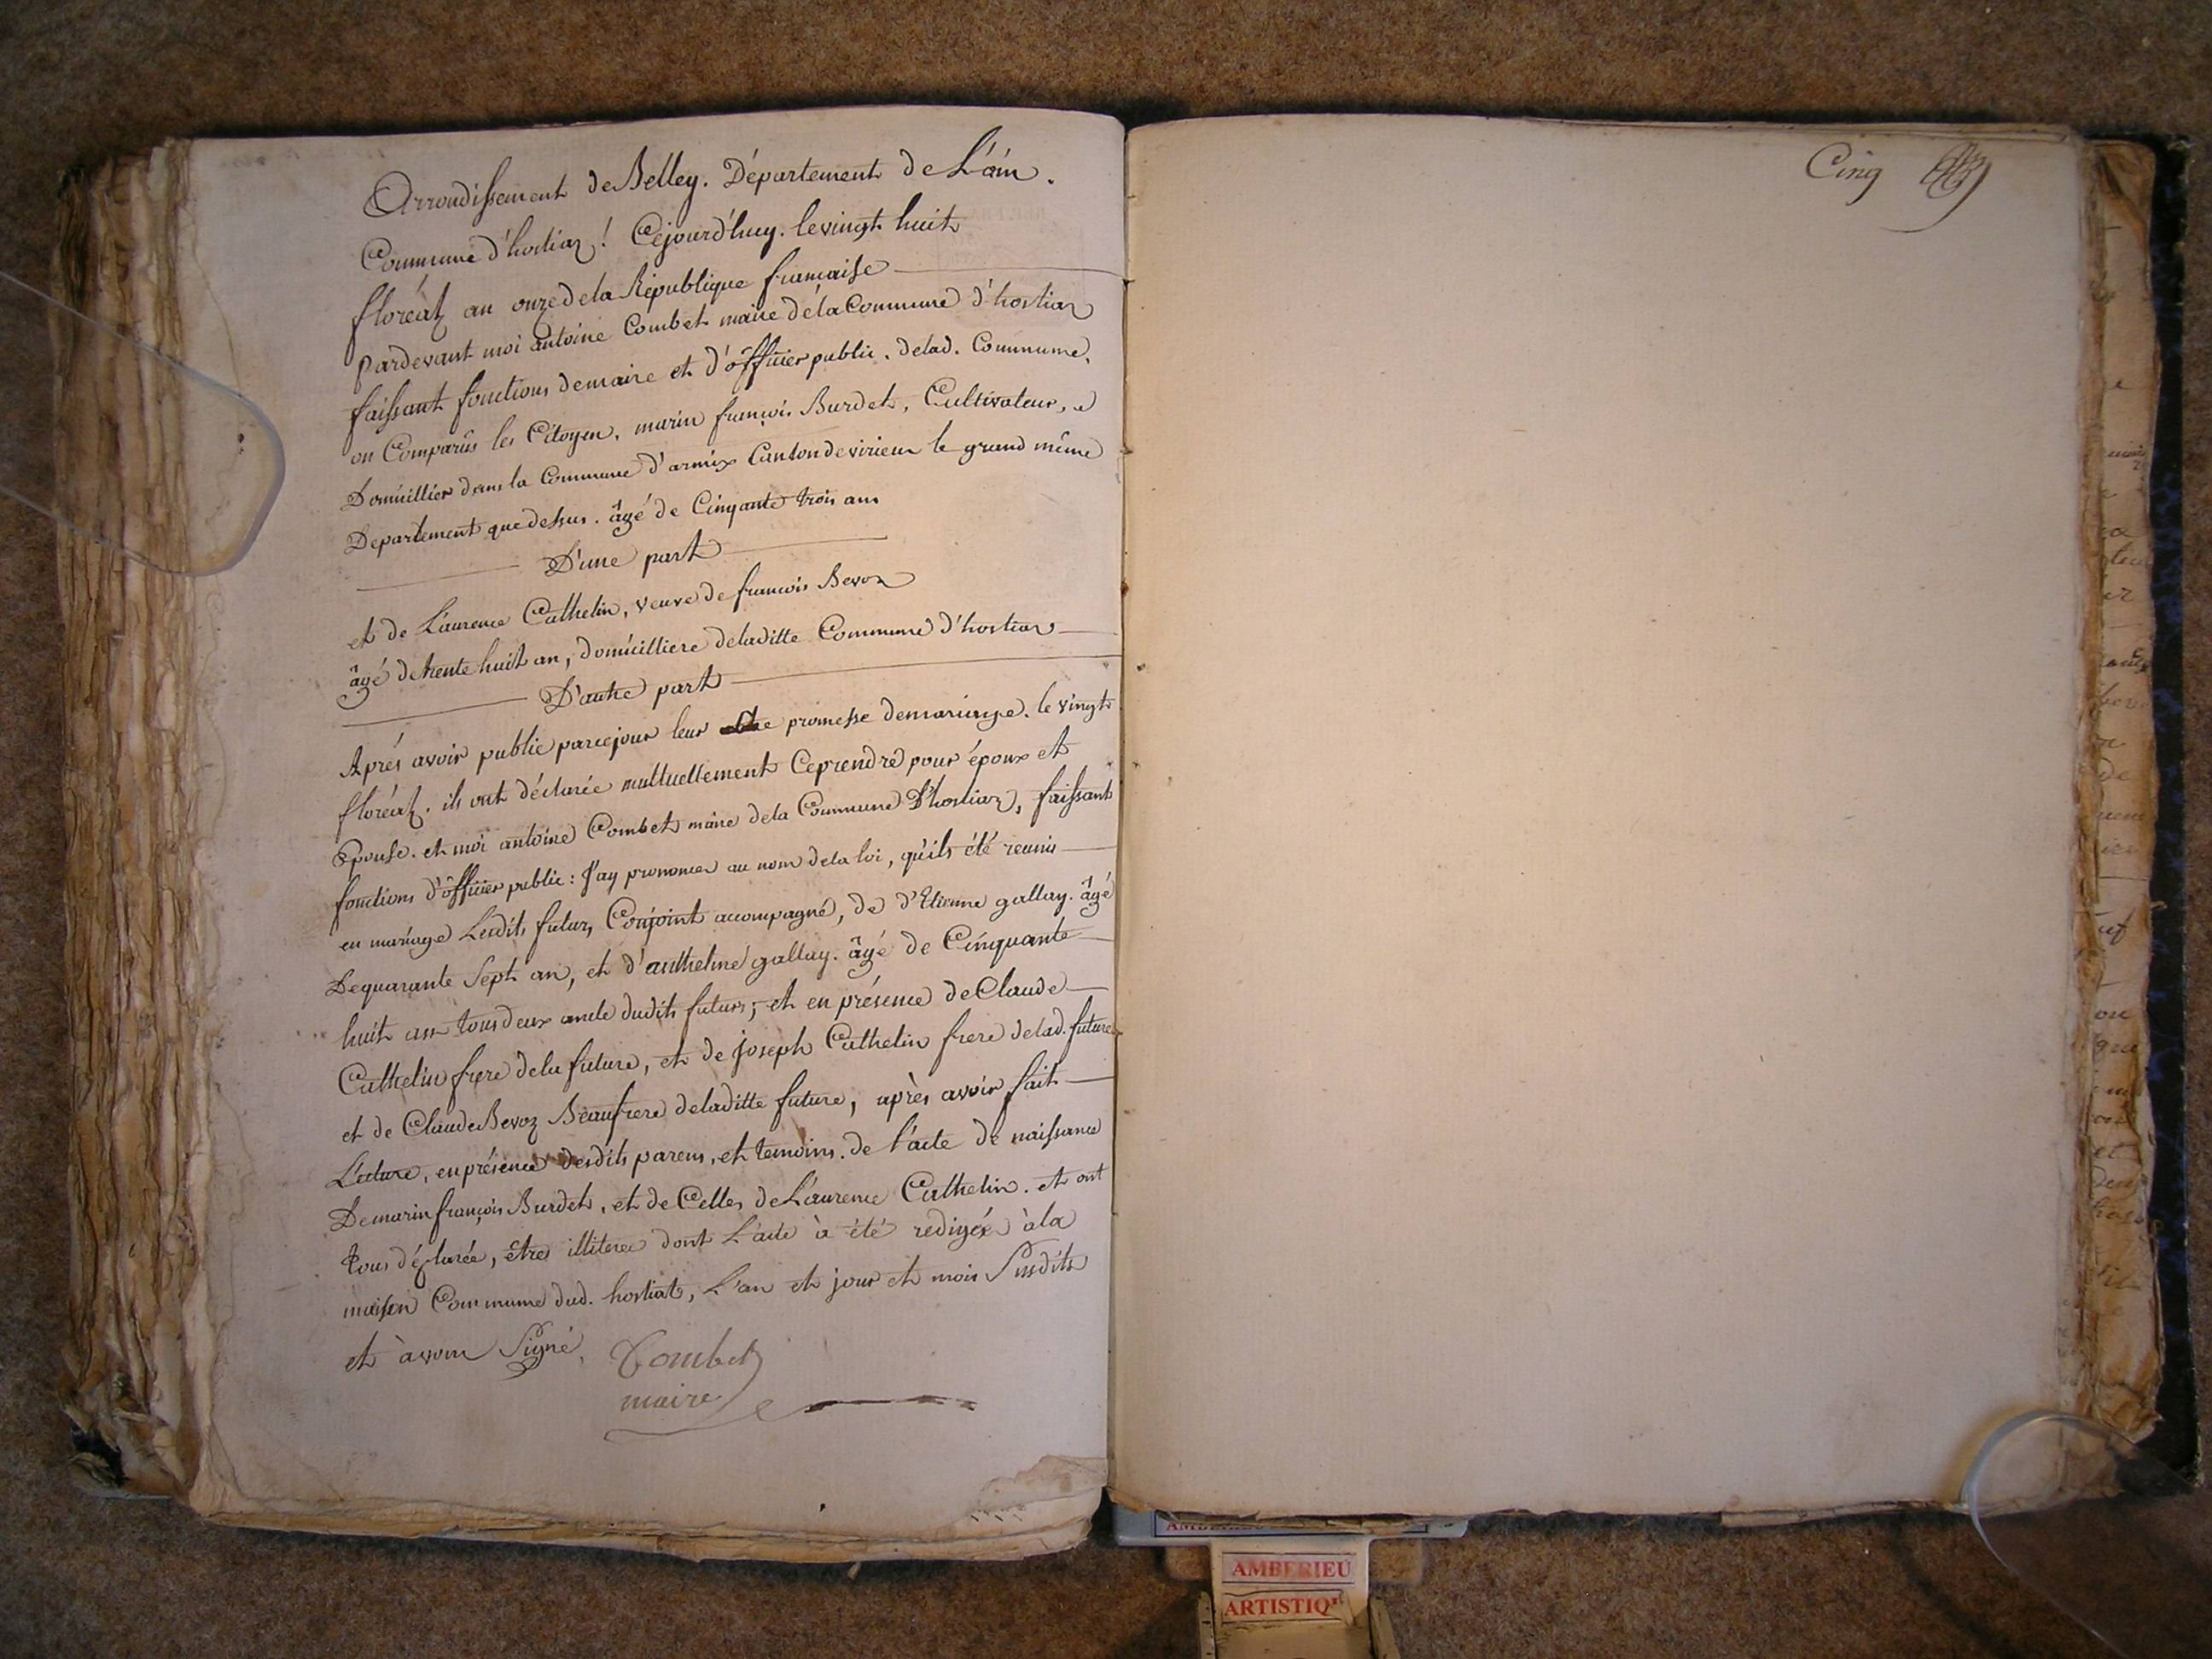 Arrondissement de Belley. Département de L'ain.
Commune d'hostiaz! Cejourd'huy. le vingt huit
floréal an onze de la République française
Pardevant moi antoine Combet maire dela Commune d'hostiaz
faissant fonctions de maire et d'officier public. delad. Commune.
on Comparûs les Citoyen, marin françois Burdet, Cultivateur, a
Domicillier dans la Commune d'armix Canton de virieu le grand même
Departement que dessus. âgé de Cinqante trois ans
D'une part
et de Laurence Cathelin, veuve de francois Bevoz
âgé de trente huit an, domicilliere deladitte Commune d'hostiaz
D'autre part
Après avoir public par ce jour leur promesse de mariage. le vingt
floréal. ils ont déclarée multuellement Ceprendre pour époux et
Epouse. et moi antoine Combet maire dela Commune D'hostiaz, faissant
fonctions d'officier public: J'ay prononcer au nom dela loi, qu'ils été reunis
en mariage Lesdits futurs Conjoint accompagné, de d'Etienne gallay. âgé
De quarante Sept an, et d'anthelme gallay. âgé de Cinquante
huit ans tous deux oncle dudits futurs, et en présence de Claude
Cathelin frere dela future, et de joseph Cathelin frere delad. future
et de Claude Bevoz Beaufrere deladitte future, après avoir fait
Lecture, en présence desdits parens, et temoins. de l'acte de naissance
De marin françois Burdet, et de Celles de Laurence Cathelin. et ont
tous déclarée, être illiterée dont L'acte à été redigée à la
maison Commune dud. hostiat, L'an et jour et mois Susdits
et avons Signé,
Combet
maire
Cinq
AMBERIEU
ARTISTIQ